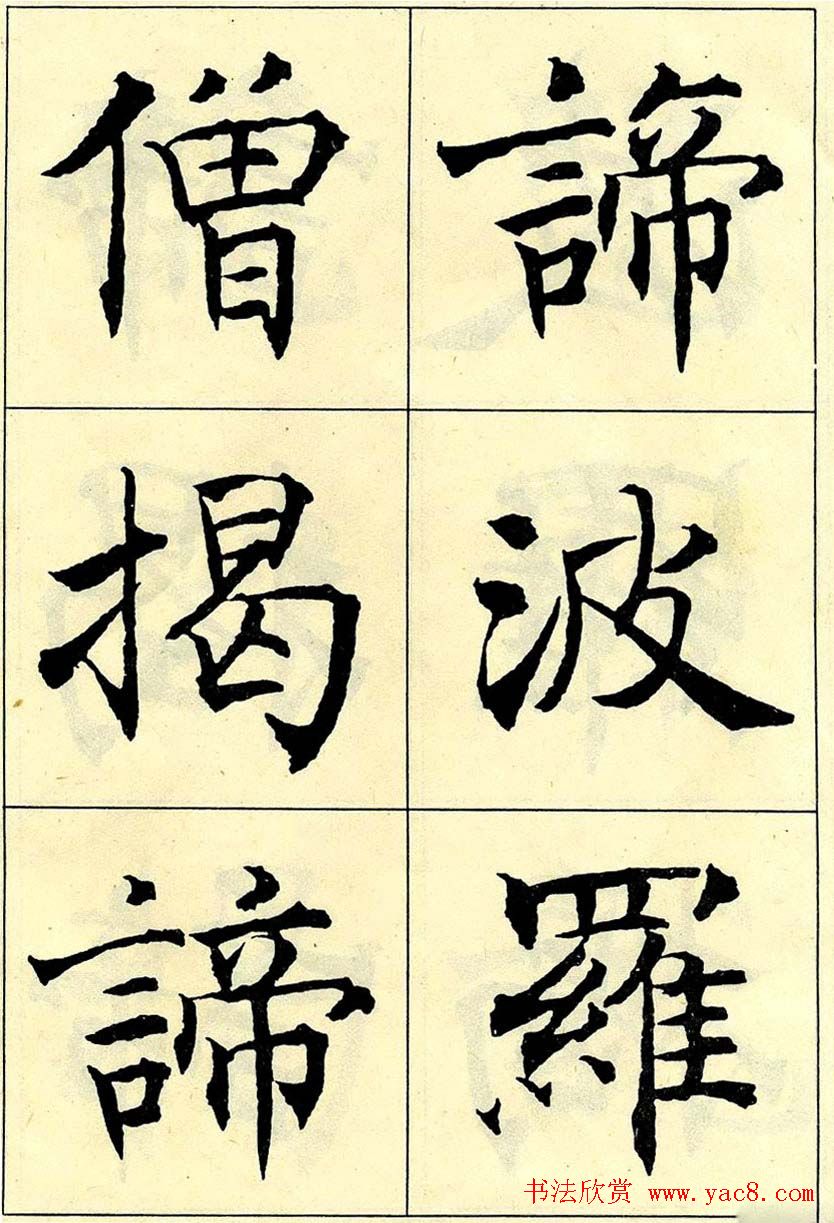 諦波羅
僧揭諦
书法欣赏 www.yac8.com